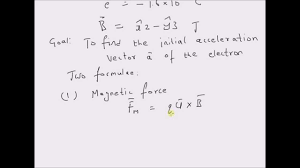 e = -1.6 × 10 C
B̄ = x̂2 - ŷ3 T
Goal: To find the initial acceleration
vector ā of the electron
Two formulae:
(1) Magnetic force
F̄m = q ū × B̄